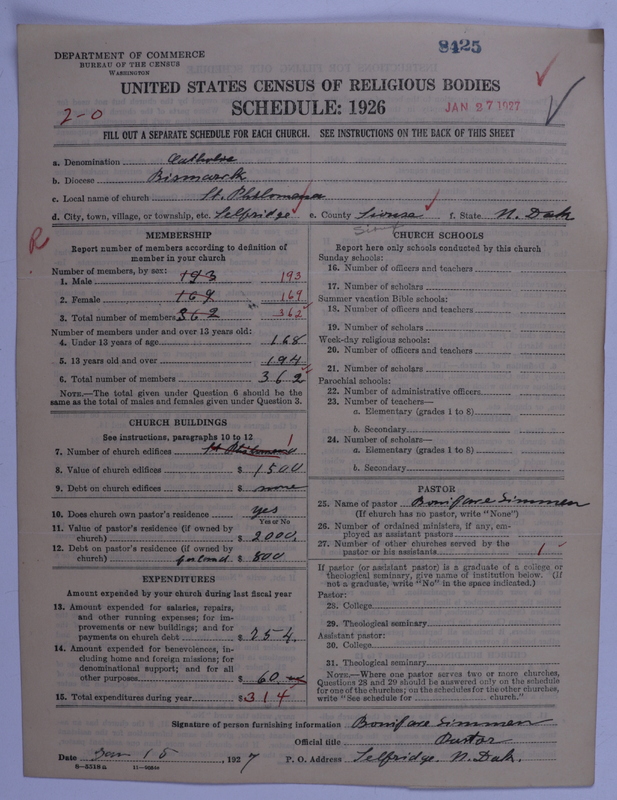 DEPARTMENT OF COMMERCE
BUREAU OF THE CENSUS
WASHINGTON
8425
UNITED STATES CENSUS OF RELIGIOUS BODIES
SCHEDULE: 1926
JAN 27 1927
2-0
FILL OUT A SEPARATE SCHEDULE FOR EACH CHURCH. SEE INSTRUCTIONS ON THE BACK OF THIS SHEET
a. Denomination Catholic
b. Diocese Bismarck
c. Local name of church St. Philomena
d. City, town, village, or township, etc. Selfridge e. County Siouse f. State N. Dak
R
MEMBERSHIP
Report number of members according to definition of member in your church
Number of members, by sex:
1. Male 193 193
2. Female 169 169
3. Total number of members 362 362
Number of members under and over 13 years old:
4. Under 13 years of age 168
5. 13 years old and over 194
6. Total number of members 362
NOTE.—The total given under Question 6 should be
same as the total of males and females given under Question 3.
CHURCH BUILDINGS
See instructions, paragraphs 10 to 12
7. Number of church edifices 1
8. Value of church edifices $ 1500
9. Debt on church edifices $ none
10. Does church own pastor's residence yes
Yes or No
11. Value of pastor's residence (if owned by
church) $ 2000.
12. Debt on pastor's residence (if owned by
church) $ 800
EXPENDITURES
Amount expended by your church during last fiscal year
13. Amount expended for salaries, repairs,
and other running expenses; for im-
provements or new buildings; and for
payments on church debt $ 254.
14. Amount expended for benevolences, in-
cluding home and foreign missions; for
denominational support; and for all
other purposes $ 60
15. Total expenditures during year $ 314
CHURCH SCHOOLS
Report here only schools conducted by this church
Sunday schools:
16. Number of officers and teachers
17. Number of scholars
Summer vacation Bible schools:
18. Number of officers and teachers
19. Number of scholars
Week-day religious schools:
20. Number of officers and teachers
21. Number of scholars
Parochial schools:
22. Number of administrative officers
23. Number of teachers—
a. Elementary (grades 1 to 8)
b. Secondary
24. Number of scholars—
a. Elementary (grades 1 to 8)
b. Secondary
PASTOR
25. Name of pastor Boniface Simmen
(If church has no pastor, write "None")
26. Number of ordained ministers, if any, em-
ployed as assistant pastors
27. Number of other churches served by the
pastor or his assistants 1
If pastor (or assistant pastor) is a graduate of a college or
theological seminary, give name of institution below. (If
not a graduate, write "No" in the space indicated.)
Pastor:
28. College
29. Theological seminary
Assistant pastor:
30. College
31. Theological seminary
NOTE.—Where one pastor serves two or more churches,
Questions 28 and 29 should be answered only on the schedule
for one of the churches; on the schedules for the other churches,
write "See schedule for church."
Signature of person furnishing information Boniface Simmen
Official title Pastor
Date Jan 15, 1927 P. O. Address Selfridge. N. Dak.
8-5318a